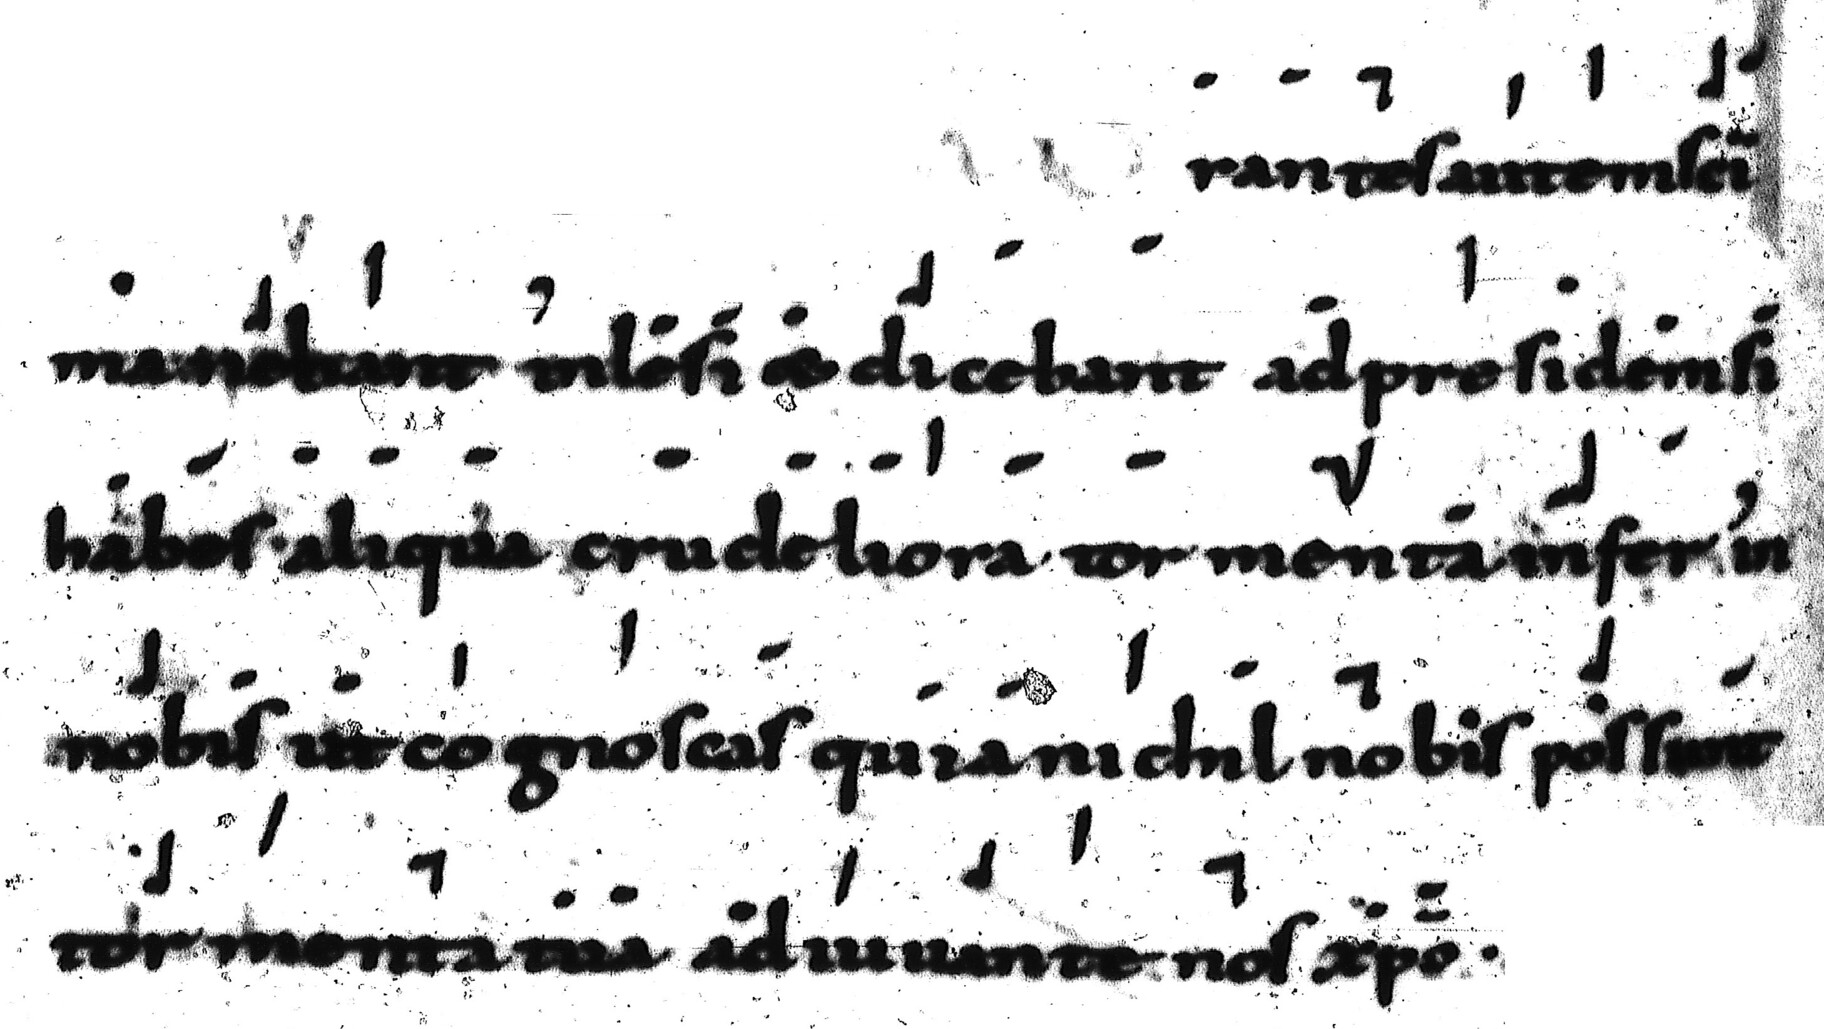 rantes autem sc̄i
manebant inlesi & dicebant ad presidem si
habes aliqua crudeliora tormenta infer in
nobis ut cognoscas quia nichil nobis possunt
tormenta tua adiuuante nos xp̄o.